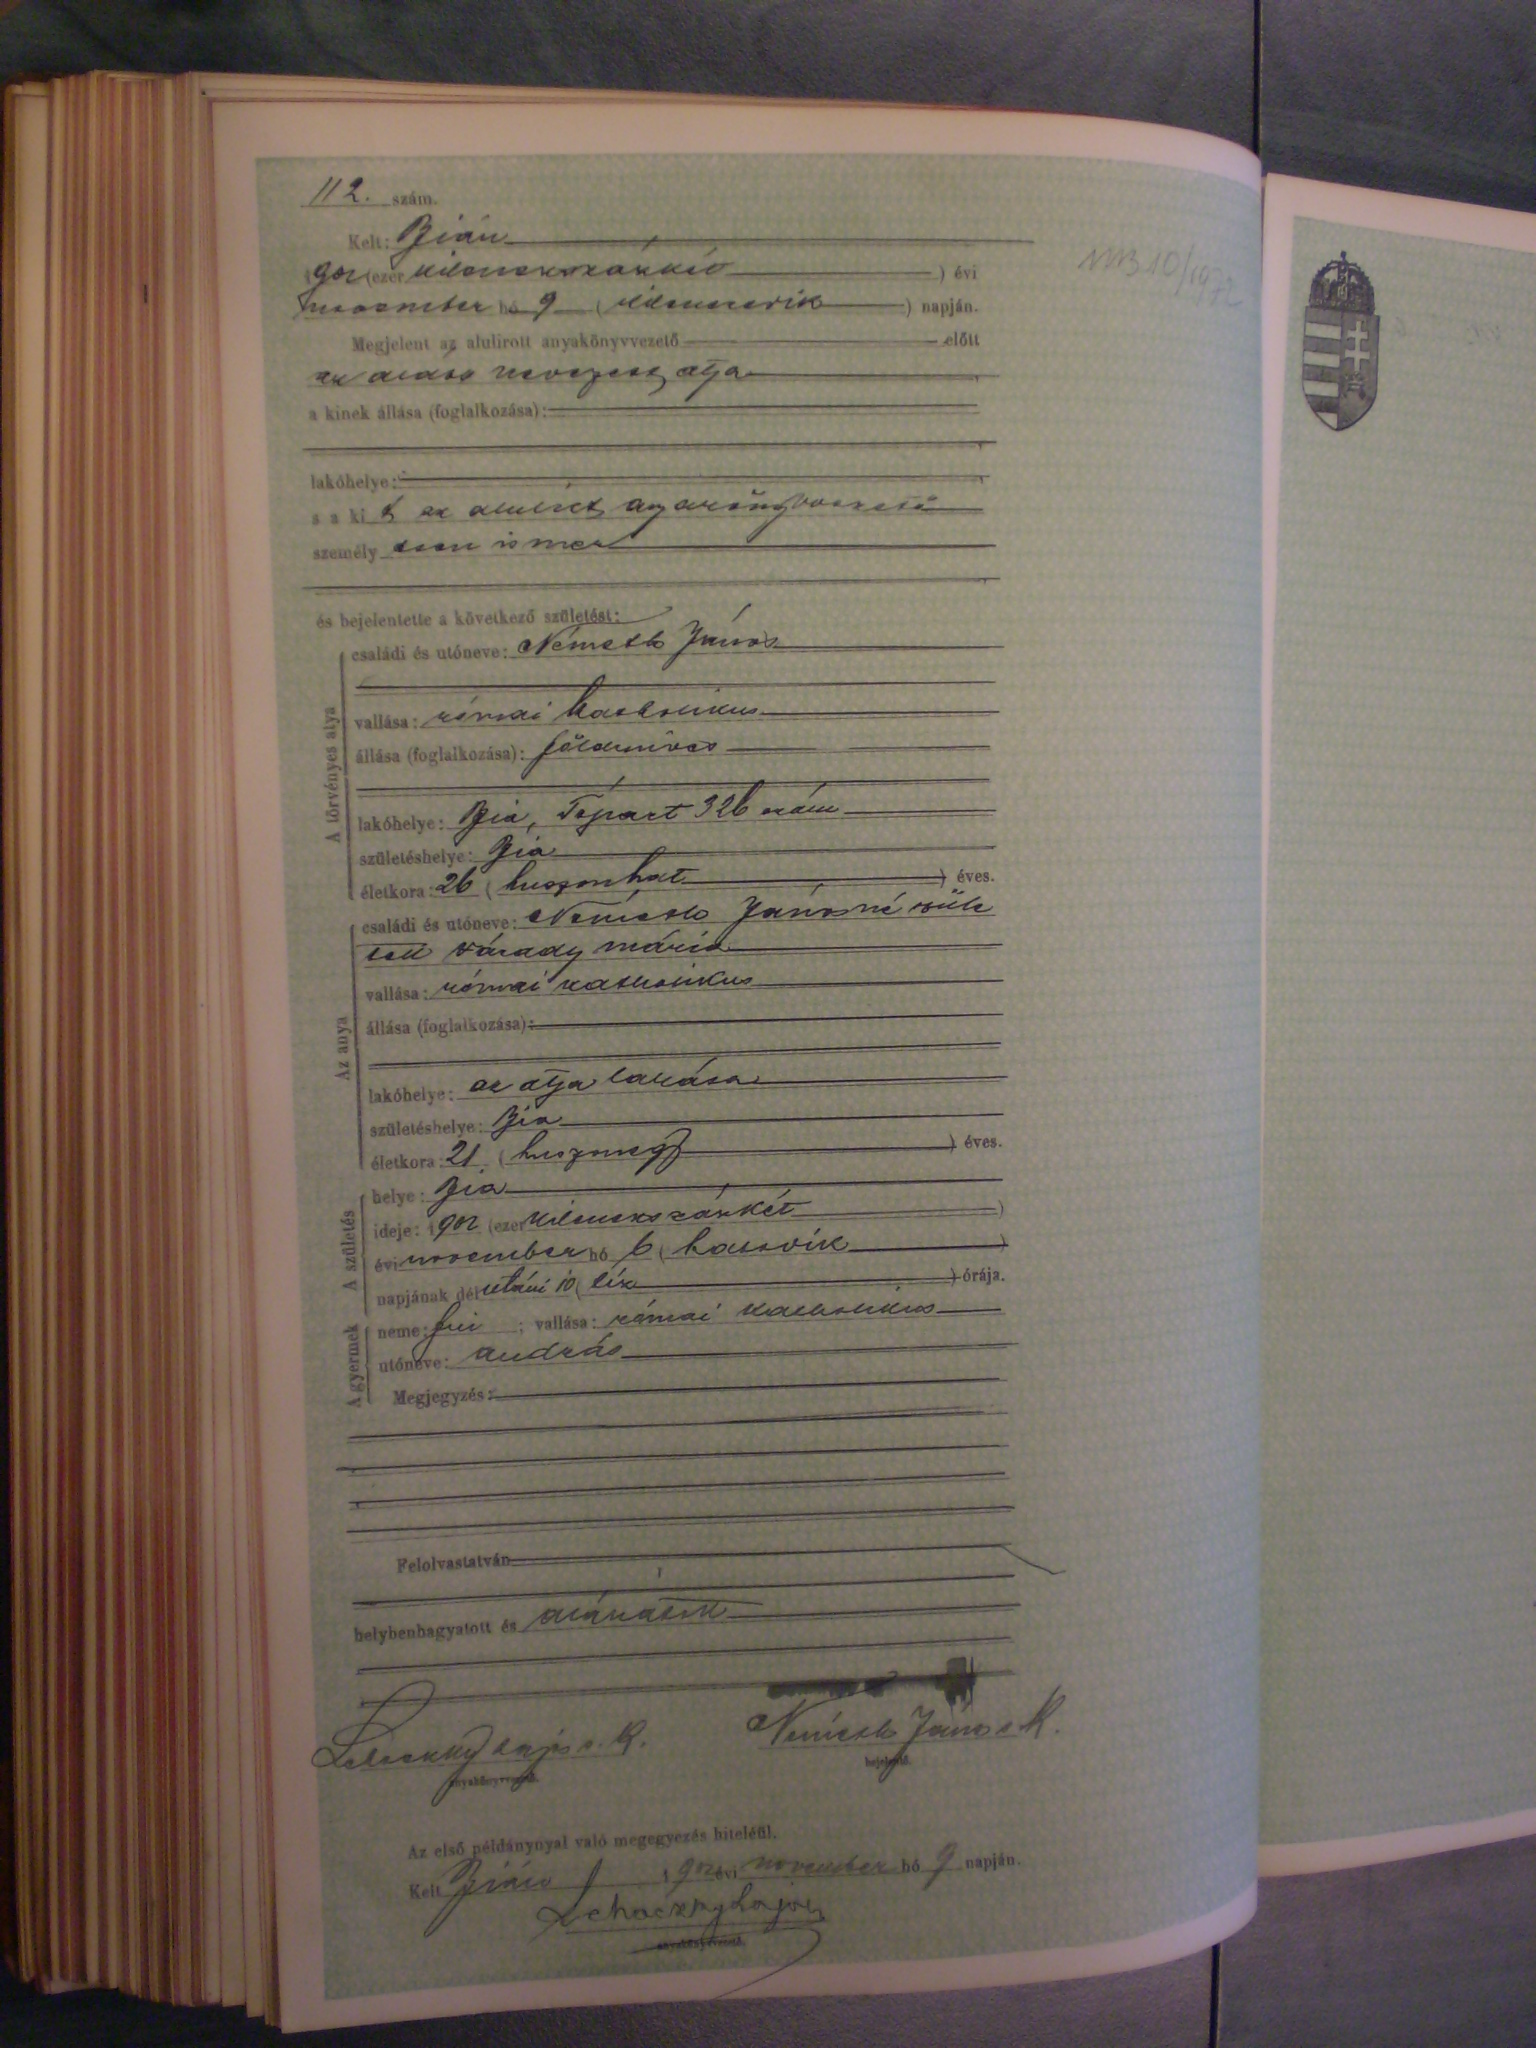 112. szám.
Kelt: Bián
1902 (ezer kilencszázkét) évi
november hó 9 (kilencedik) napján.
Megjelent az alulirott anyakönyvvezető előtt
az alább nevezett atya
a kinek állása (foglalkozása):
lakóhelye:
s a kit az alulírt anyakönyvvezető
személyesen ismer
és bejelentette a következő születést:
A törvényes atya
családi és utóneve: Németh János
vallása: római katholikus
állása (foglalkozása): földmíves
lakóhelye: Bia, Tópart 326 szám
születéshelye: Bia
életkora: 26 (huszonhat) éves.
Az anya
családi és utóneve: Németh Jánosné szüle
tett Várady Mária
vallása: római katholikus
állása (foglalkozása):
lakóhelye: az atya lakása
születéshelye: Bia
életkora: 21 (huszonegy) éves.
A születés
helye: Bia
ideje: 1902 (ezer kilencszázkét)
évi november hó 6 (hatodik)
napjának délutáni 10 (tíz) órája.
A gyermek
neme: fiu; vallása: római katholikus
utóneve: András
Megjegyzés:
Felolvastatván
helybenhagyatott és aláiratott
Lehoczky Lajos s. k. Németh János s. k.
anyakönyvvezető. bejelentő.
Az első példánynyal való megegyezés hiteléül.
Kelt Bián 1902 évi november hó 9 napján.
Lehoczky Lajos
anyakönyvvezető.